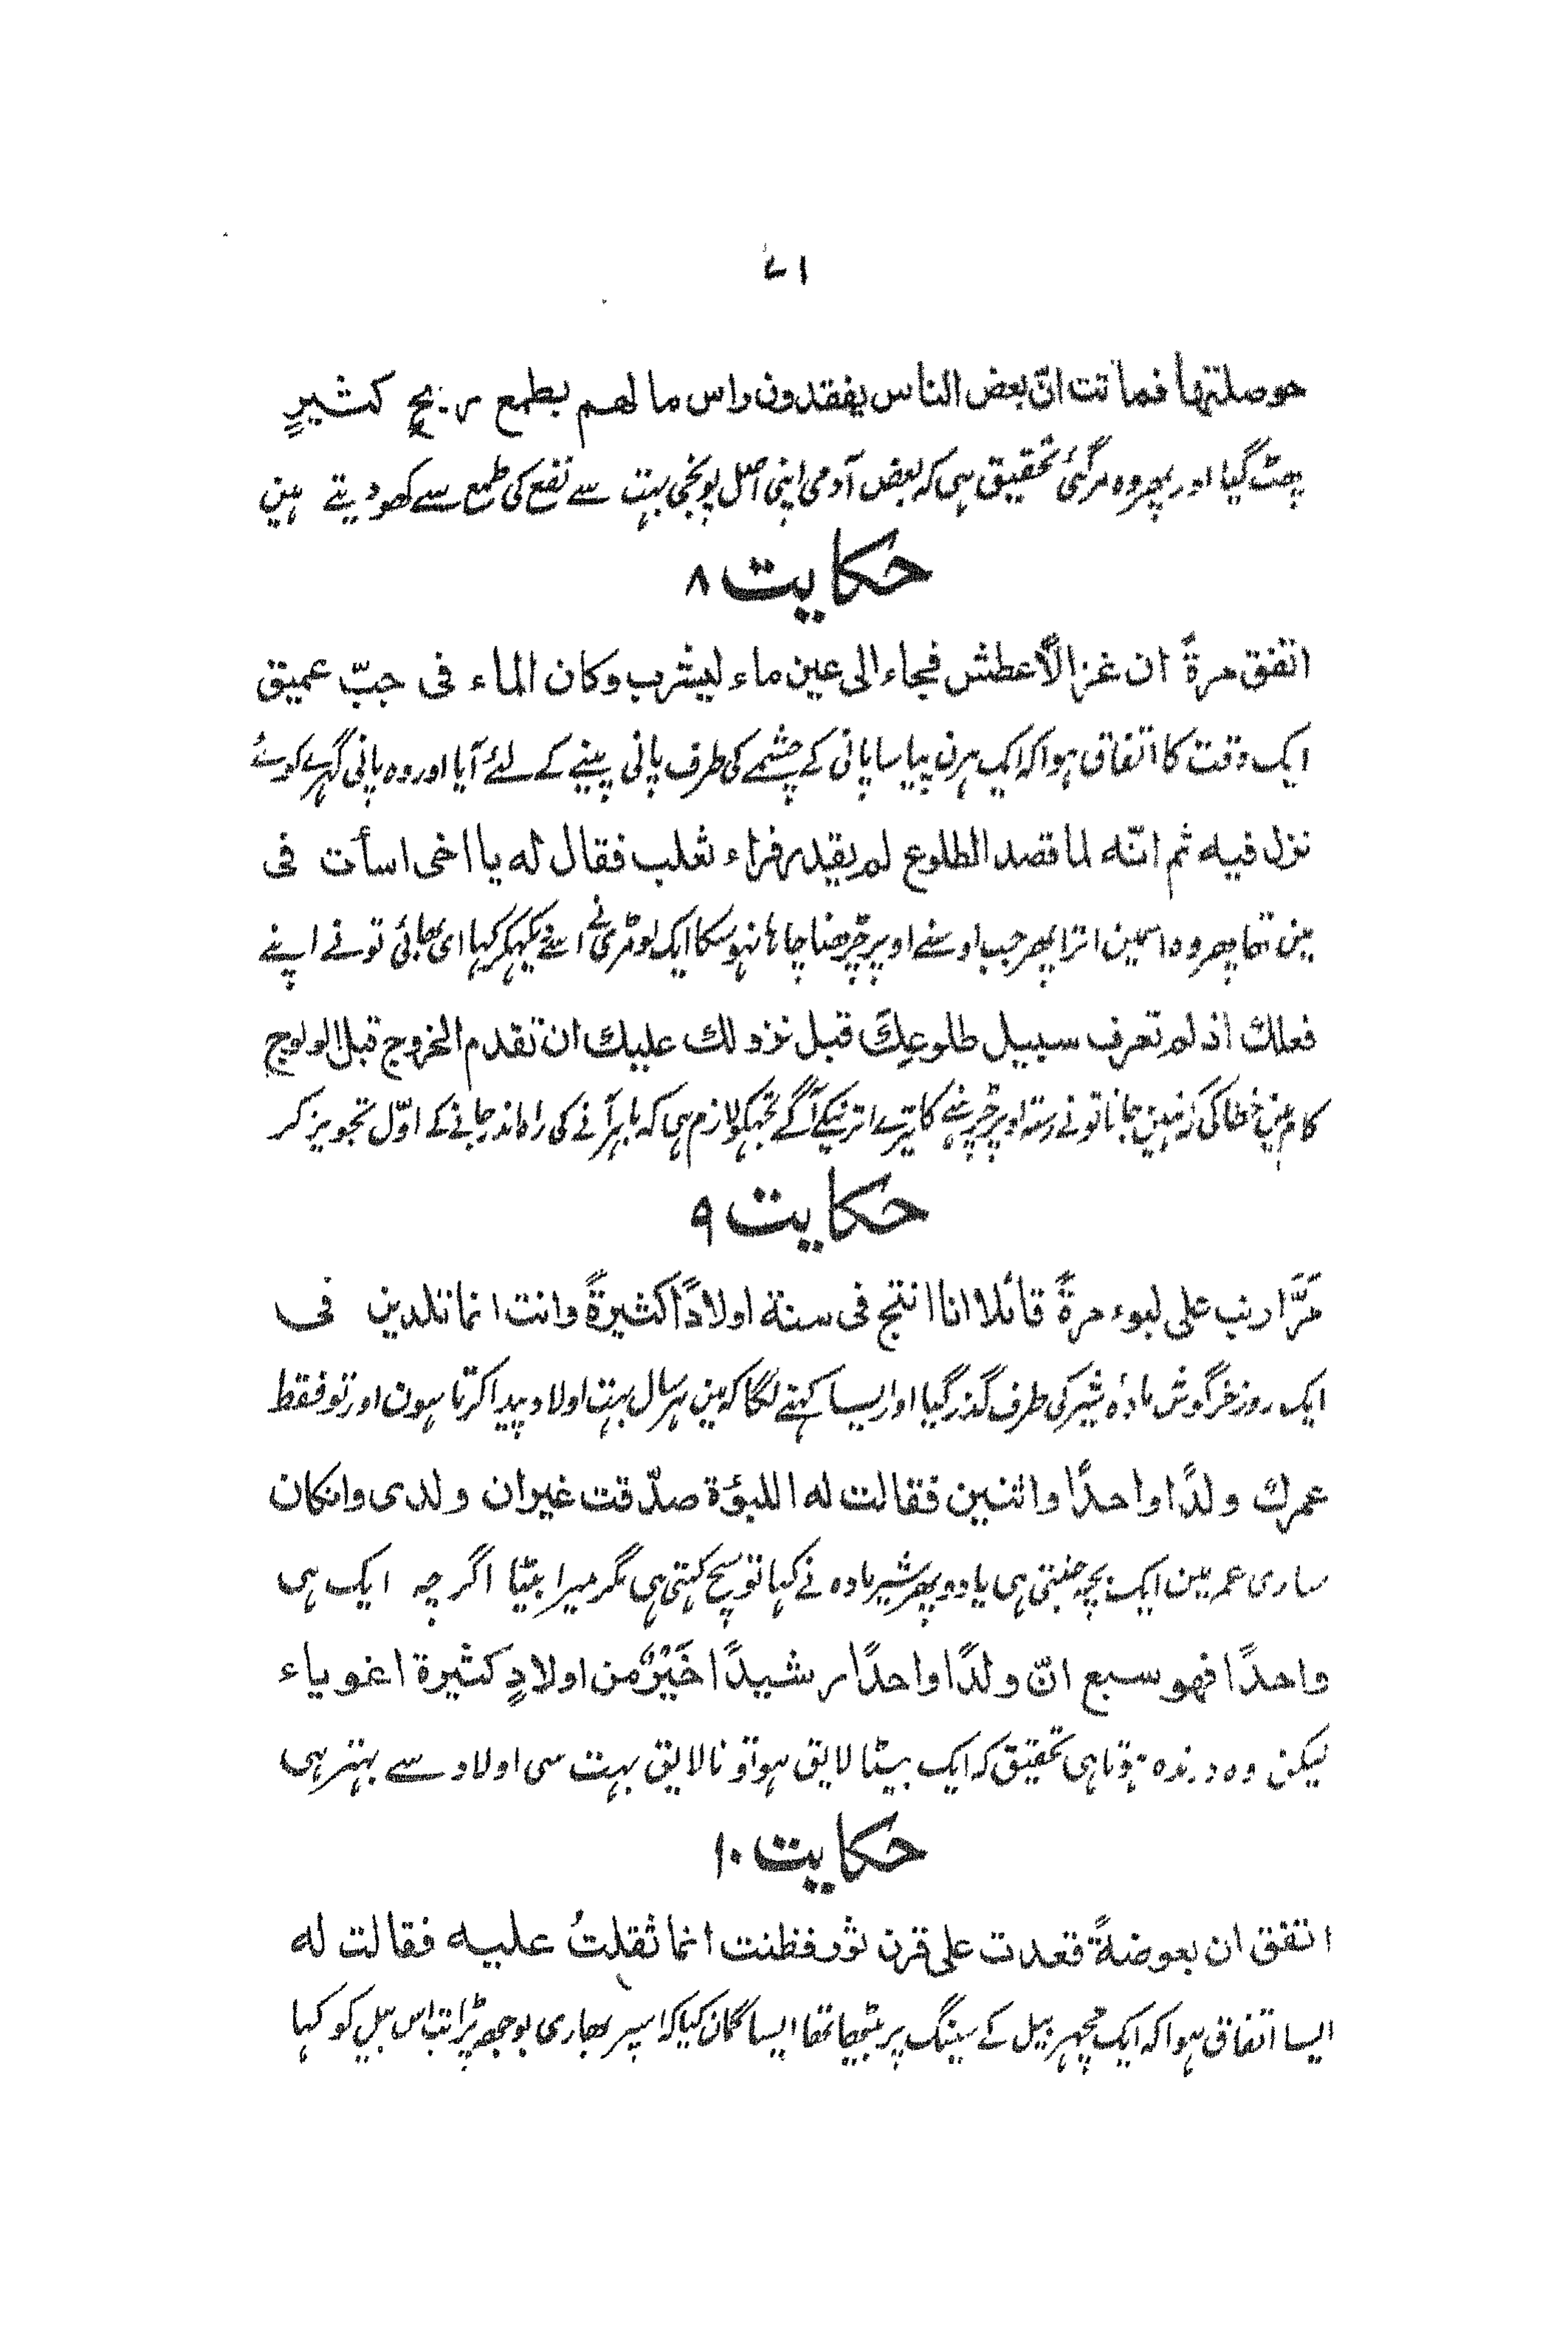 ٧١
حوصلتہا فماتت انّ بعض الناس یفقدون راس مالھم بطمع ربحٍ کثیرٍ
پھٹ گیا اور پھر وہ مرگئی تحقیق ہی کہ بعض آدمی اپنی اصل پونجی بہت سے نفع کی طمع سے کھو دیتے ہین
حکایت ۸
اتفق مرةً ان غزالًا عطش فجاء الی عین ماء لیشرب وکان الماء فی جبّ عمیق
ایک وقت کا اتفاق ہوا کہ ایک ہرن پیاسا پانی کے چشمے کی طرف پانی پینے کے لئے آیا اور وہ پانی گہرے کوے
نزل فیه ثم انّه لما قصد الطلوع لم یقدر فراء ثعلب فقال له یا اخی اسأت فی
مین تھا پھر وہ اسمین اترا پھر جب اوسنے اوپر چڑھنا چاہا نہوسکا ایک لومڑی نے اسے دیکھکر کہا ای بھائی تو نے اپنے
فعلك اذ لم تعرف سبیل طلوعِكَ قبل نزولك علیك ان تقدم الخروج قبل الولوج
کام مین خطا کی کہ نہین جانا تو نے رستہ اوپر چڑھنے کا تیرے اترنیکے آگے تجہکو لازم ہی کہ باہر آنے کی راہ اندر جانے کے اوّل تجویز کر
حکایت ۹
مَرَّ ارنب علی لبوء مرةً قائلا انا انتج فی سنة اولادًا کثیرةً وانت انما تلدین فی
ایک روز خرگوش مادۂ شیر کی طرف گذر گیا اور ایسا کہنے لگا کہ مین ہر سال بہت اولاد پیدا کرتا ہون اور تو فقط
عمرك ولدًا واحدًا واثنین فقالت له اللبؤة صدّقت غیر ان ولدی وانکان
ساری عمر مین ایک بچہ جنتی ہی یا دو پھر شیر مادہ نے کہا تو سچ کہتی ہی مگر میرا بیٹا اگرچہ ایک ہی
واحدًا فهو سبع انّ ولدًا واحدًا رشیدًا خَیْرٌ من اولادٍ کثیرة اغویاء
لیکن وہ درندہ ہوتا ہی تحقیق کہ ایک بیٹا لایق ہو تو نالایق بہت سی اولاد سے بہتر ہی
حکایت ۱۰
اتفق ان بعوضةً قعدت علی قرن ثور فظنت انما ثقلتُ علیه فقالت له
ایسا اتفاق ہوا کہ ایک مچھر بیل کے سینگ پر بیٹھا تھا ایسا گمان کیا کہ اسپر بھاری بوجھ پڑا تب اس بیل کو کہا